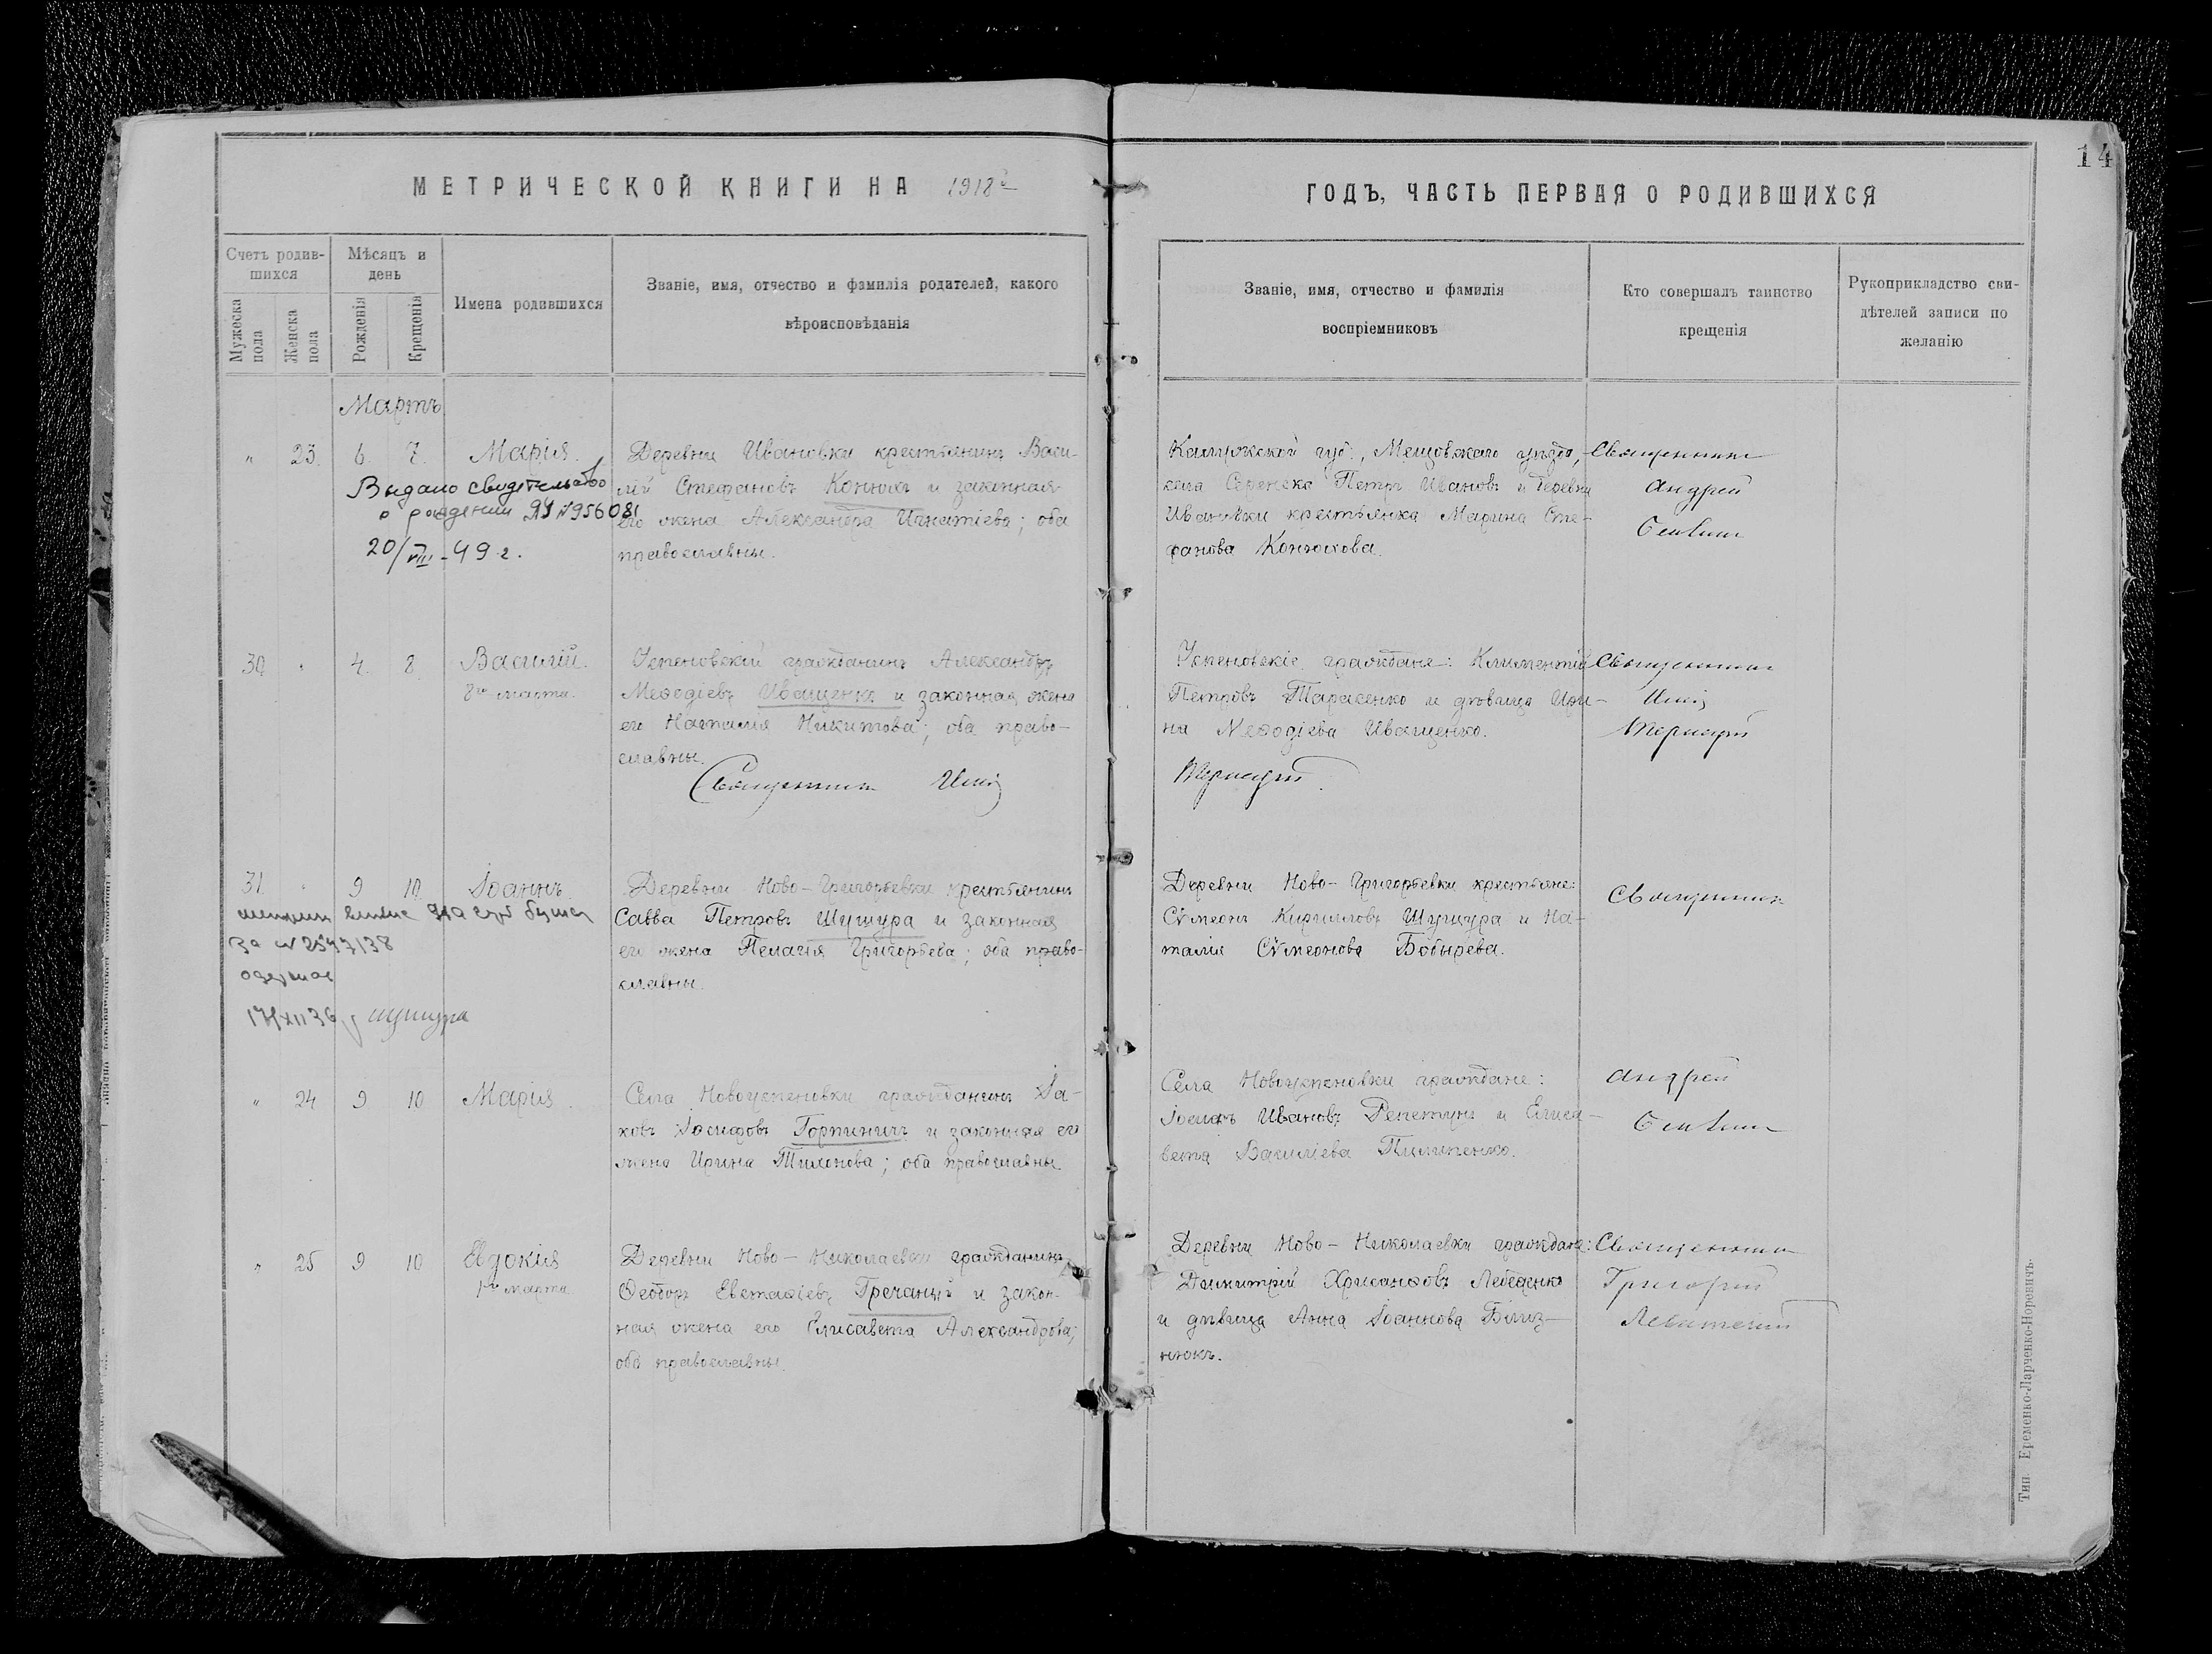 14
МЕТРИЧЕСКОЙ КНИГИ НА 1918й
ГОДЪ, ЧАСТЬ ПЕРВАЯ О РОДИВШИХСЯ
Счетъ родив-
шихся
Мужеска пола
Женска пола
Мѣсяцъ и
день
Рожденія
Крещенія
Имена родившихся
Званіе, имя, отчество и фамилія родителей, какого
вѣроисповѣданія
Званіе, имя, отчество и фамилія
воспріемниковъ
Кто совершалъ таинство
крещенія
Рукоприкладство сви-
дѣтелей записи по
желанію
Мартъ
" 23. 6. 7. Марія.
Выдано свидетельство
о рождении
20/VIII-49 г.
Деревни Ивановки крестьянинъ Васи-
лій Стефановъ Конюхъ и законная
его жена Александра Игнатіева; оба
православны.
Калужской губ., Мещовскаго уѣзда,
села Серенска Петръ Ивановъ и деревни
Ивановки крестьянка Марина Сте-
фанова Конюхова.
Священникъ
Андрей
30 " 4. 8. Василій.
8го марта.
Успеновскій гражданинъ Александръ
Меѳодіевъ Иващенко и законная жена
его Наталія Никитова; оба право-
славны.
Священникъ
Успеновскіе граждане: Климентій
Петровъ Тарасенко и дѣвица Ири-
на Меѳодіева Иващенко.
Священникъ
31. " 9 10 Іоаннъ
за № 2547/38
Шушура
Деревни Ново-Григорьевки крестьянинъ
Савва Петровъ Шушура и законная
его жена Пелагія Григорьева; оба право-
славны.
Деревни Ново-Григорьевки крестьяне:
Сѵмеонъ Кирилловъ Шушура и На-
талія Сѵмеонова Бобырева.
Священникъ
" 24 9 10 Марія
Села Новоуспеновки гражданинъ Іа-
ковъ Іосифовъ Горпиничъ и законная его
жена Ирина Тихонова; оба православны
Села Новоуспеновки граждане:
Іосифъ Ивановъ Репетунъ и Елиса-
вета Василіева Пилипенко.
Андрей
" 25 9 10 Евдокія
1го марта.
Деревни Ново-Николаевки гражданинъ
Ѳеодоръ Евстаѳіевъ Гречаный и закон-
ная жена его Елисавета Александрова;
оба православны.
Деревни Ново-Николаевки граждане:
Димитрій Хрисанѳовъ Лебеденко
и дѣвица Анна Іоаннова Близ-
нюкъ.
Священникъ
Григорій
Левитскій
Тип. Еременко-Ларченко-Норевичъ.